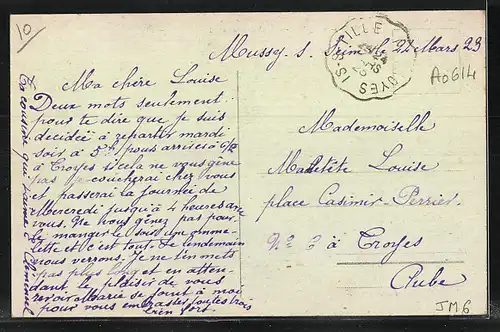 10
Mussy s. Seine le 24 Mars 23
A0614
Ma chère Louise
Deux mots seulement
pour te dire que je suis
décidée à repartir mardi
soir à 5h pour arriver à 6h
à Troyes si cela ne vous gêne
pas je coucherai chez vous
et passerai la journée de
Mercredi jusqu'à 4 heures avec
vous. Ne vous gênez pas pour
le manger le soir une omme-
lette et c'est tout. Le lendemain
nous verrons. Je ne t'en mets
pas plus long et en atten-
dant le plaisir de vous
revoir Marie se joint à moi
pour vous embrasser toutes trois
bien fort.
Ta cousine qui t'aime
Mademoiselle
Louise
place Casimir-Perrier
No 3 à Troyes
Aube
JM6